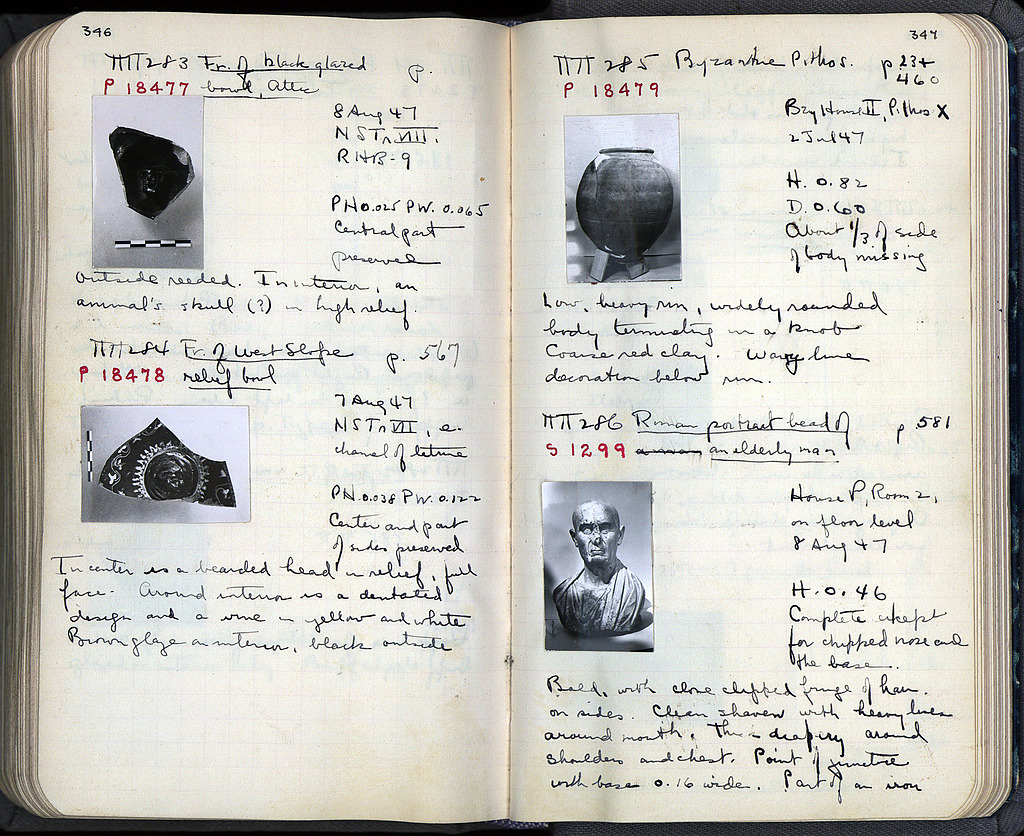 346
ΠΠ 283 Fr. of black glazed p.
P 18477 bowl, Attic
8 Aug 47
NSTr VIII.
RHB-9
PH 0.025 PW. 0.065
Central part
preserved
Outside reeded. In interior, an
animal's skull (?) in high relief.
ΠΠ 284 Fr. of West Slope p. 567
P 18478 relief bowl
7 Aug 47
NSTr VII, e.
channel of latrine
PH. 0.038 PW. 0.122
Center and part
of sides preserved
In center is a bearded head in relief, full
face. Around interior is a dentated
design and a vine in yellow and white
Brown glaze on interior, black outside
347
ΠΠ 285 Byzantine Pithos. p 23+
P 18479 460
Byz House II, Pithos X
2 Jul 47
H. 0.82
D. 0.60
About 1/3 of side
of body missing
Low, heavy rim, widely rounded
body terminating in a knob
Coarse red clay. Wavy line
decoration below rim.
ΠΠ 286 Roman portrait head of p 581
S 1299 an elderly man
House P, Room 2,
on floor level
8 Aug 47
H. 0.46
Complete except
for chipped nose and
the base.
Bald, with close clipped fringe of hair
on sides. Clean shaven with heavy lines
around mouth. Thin drapery around
shoulders and chest. Point of juncture
with base 0.16 wide. Part of an iron